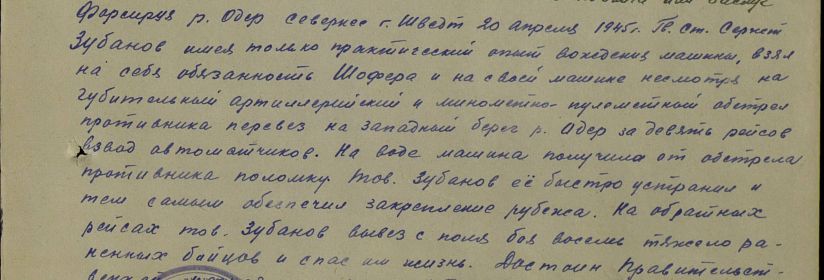 Форсируя р. Одер севернее г. Шведт 20 апреля 1945г. Гв. ст. Сержант
Зубанов имея только практический опыт вождения машины, взял
на себя обязанность Шофера и на своей машине несмотря на
губительный артиллерийский и минометно-пулеметный обстрел
противника перевез на западный берег р. Одер за девять рейсов
взвод автоматчиков. На воде машина получила от обстрела
противника поломку тов. Зубанов её быстро устранил и
тем самым обеспечил закрепление рубежа. На обратных
рейсах тов. Зубанов вывез с поля боя восемь тяжело ра-
ненных бойцов и спас им жизнь. Достоин Правительст-